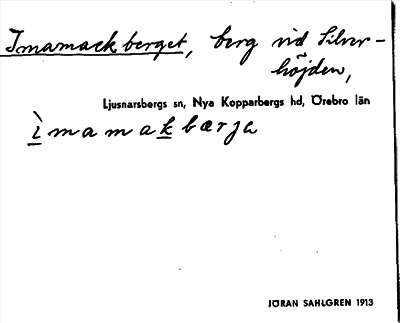 Imamackberget, berg vid Silver-
höjden,
Ljusnarsbergs sn, Nya Kopparbergs hd, Örebro län
ìmamakbærja
JÖRAN SAHLGREN 1913